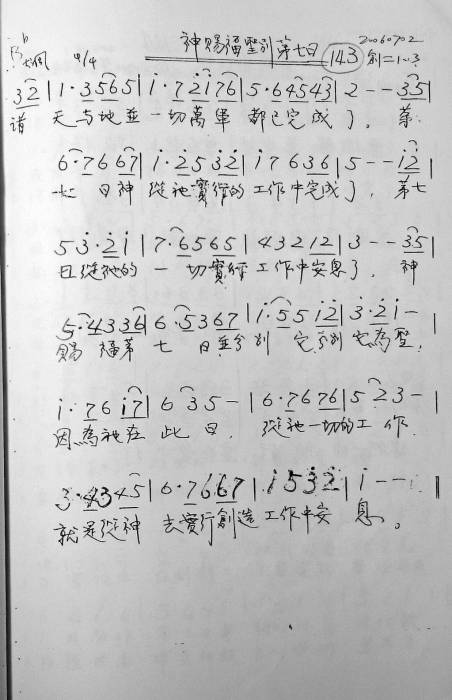 神賜福聖別第七日 143 20060702
♭B 大調 4/4 創二1-3
32|1·3565|i·72i76|5·64543|2--35|
諸 天与地並一切萬軍 都已完成了。第
6·7667|i·2532|i7636|5--i2|
七日神 從祂實行的工作中完成了,第七
53·2i|7·6565|43212|3--35|
日從祂的一切實行工作中安息了, 神
5·4336|6·5367|i·55i2|3·2i-|
賜福第七日並分別 它分別它為聖,
i·76i7|635-|6·7676|523-|
因為祂在此日, 從祂一切的工作
3·4345|6·7667|i532|i--|
就是從神 去實行創造工作中安息。